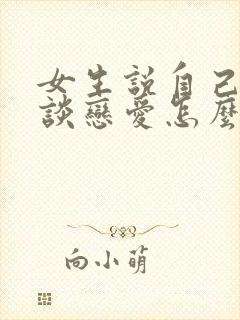 女生說自己
談戀愛怎麼
向小萌